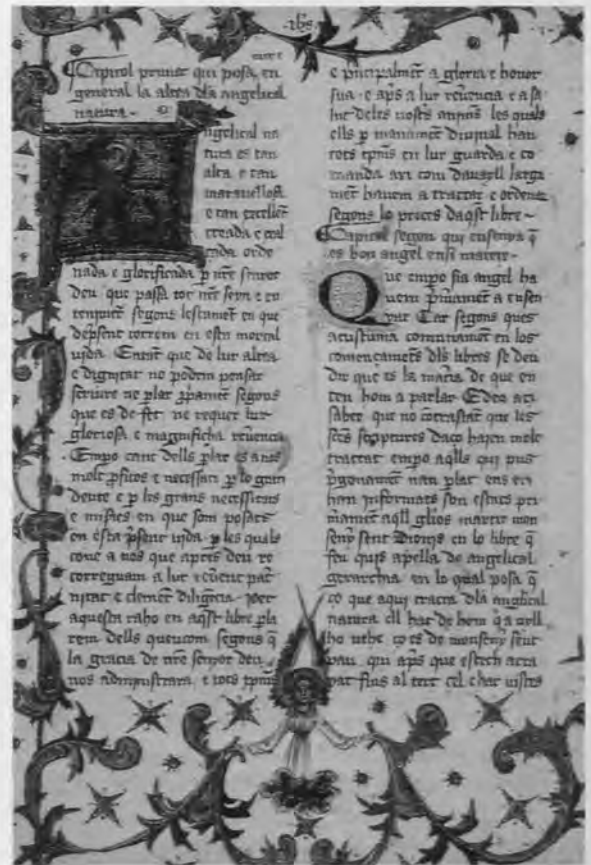 ihs
Capitol primer qui posa en
general la altea dla angelical
natura
Angelical na
tura es tan
alta e tan
maravellosa
e tan excellẽt
creada e col
cada orde
nada e glorificada p nr̃e senyor
deu que passa tot nr̃e seny e en
teniment segons lestament en que
de p̃sent correm en esta mortal
vida Enaxi que de lur altea
e dignitat no podem pensar
scriure ne plar p̃pament segons
que es de fet ne requer lur
gloriosa e magnificha reverencia
Empo cant dells plar es a nos
molt p̃fitos e necessari p lo gran
deute e p les grans necessitats
e miseries en que som posats
en esta p̃sent vida p les quals
cove a nos que apres deu re
corregam a lur
nitat e clement diligencia per
aquesta raho en aq̃st libre pla
rem dells quescom segons q̃
la gracia de nr̃e senyor deu
nos administrara e tots temps
e principalment a gloria e honor
sua e aps a lur reverencia e a sa
lut deles nostres animes les quals
ells p manamẽt divinal han
tots temps en lur guarda e co
manda axi com davayll larga
ment havem a tractar e ordenar
segons lo proces daq̃st libre
Capitol segon qui ensenya q̃
es bon angel ensi mateix
Que empo sia angel ha
vem primament a ensen
yar Car segons ques
acustuma comunament en los
comencamẽts dls libres se deu
dir que es la materia de que en
ten hom a parlar E deu aci
saber que no contrastat que les
sctẽs scriptures daco hajen molt
tractat empo aq̃lls qui pus
p̃gonament nan plat ens en
han informats son estats pri
mament aq̃ll glios martir mon
senyor sent Dionis en lo libre q̃
feu quis apella de angelical
gerarchia en lo qual posa q̃
co que aqui tracta dla angelical
natura ell hac de hom q̃ a vll
ho vehe co es de monsenyor sent
pau qui aps que estech arra
pat fins al terc cel e hac vistes